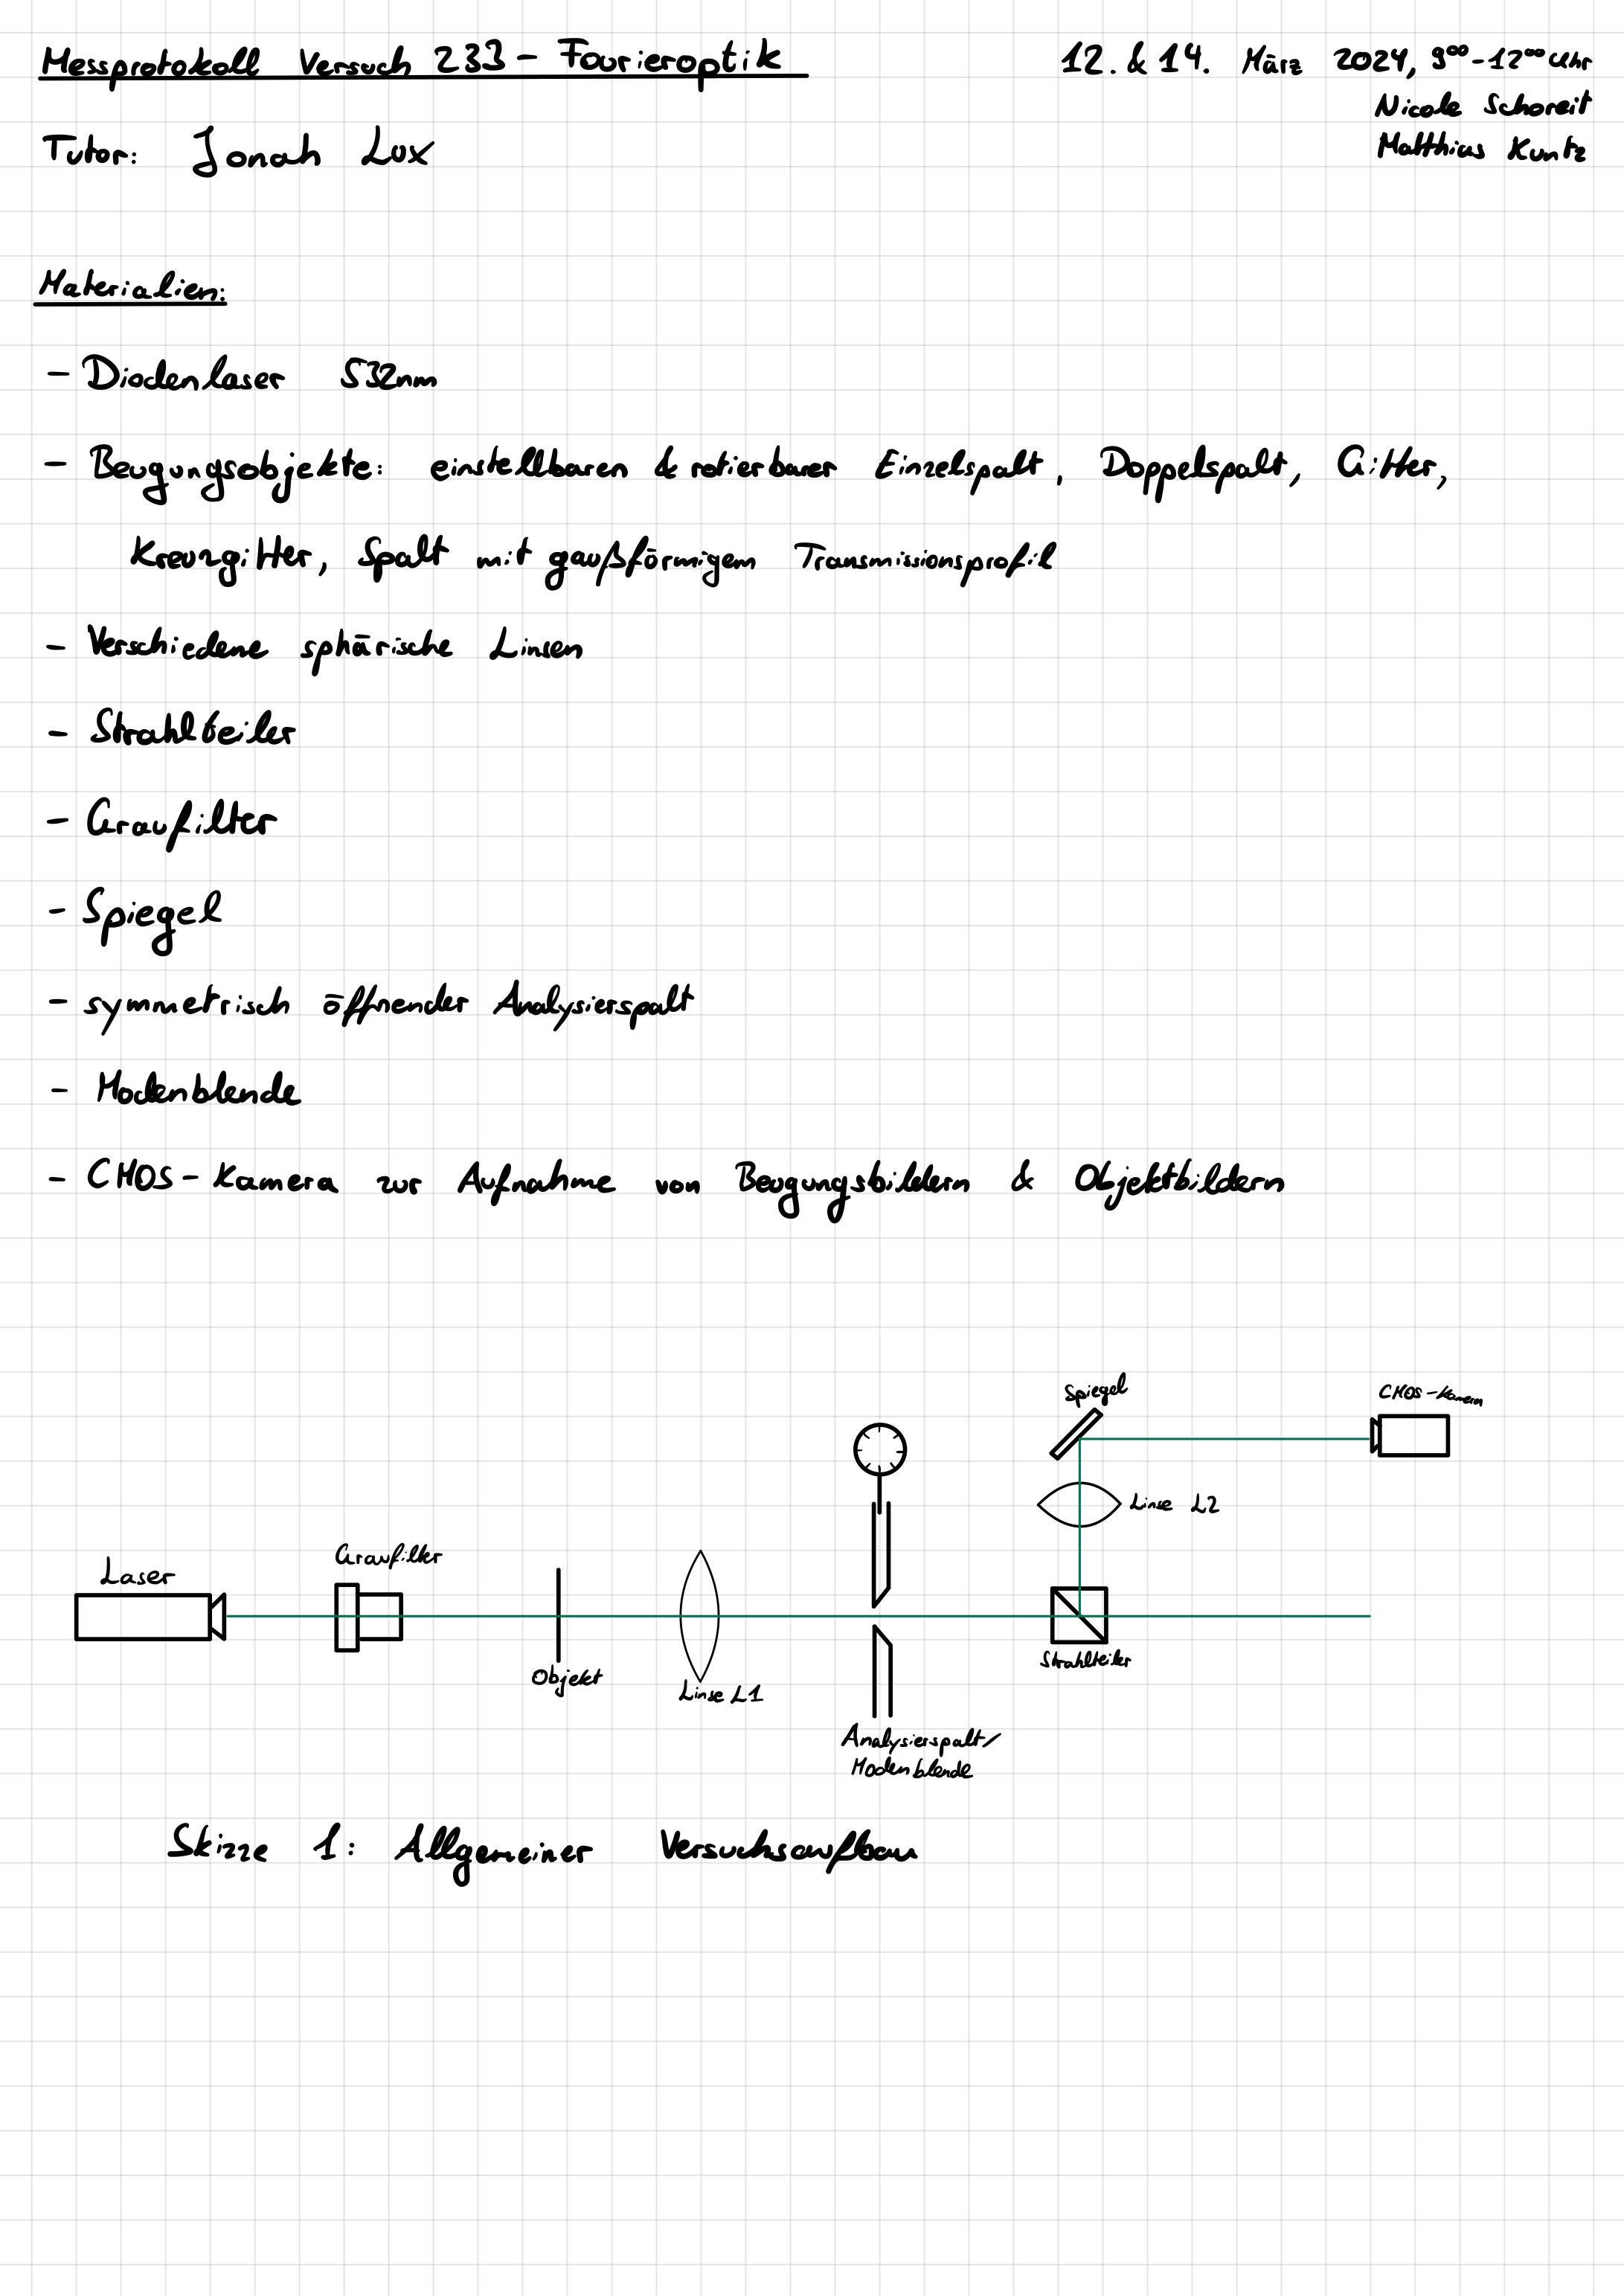 Messprotokoll Versuch 233 - Fourieroptik
12. & 14. März 2024, 9⁰⁰-12⁰⁰ Uhr
Nicole Schoreit
Matthias Kuntz
Tutor: Jonah Lux
Materialien:
- Diodenlaser 532nm
- Beugungsobjekte: einstellbaren & rotierbarer Einzelspalt, Doppelspalt, Gitter,
Kreuzgitter, Spalt mit gaußförmigem Transmissionsprofil
- Verschiedene sphärische Linsen
- Strahlteiler
- Graufilter
- Spiegel
- symmetrisch öffnender Analysierspalt
- Modenblende
- CMOS-Kamera zur Aufnahme von Beugungsbildern & Objektbildern
Spiegel
CMOS-Kamera
Linse L2
Graufilter
Laser
Strahlteiler
Objekt
Linse L1
Analysierspalt/
Modenblende
Skizze 1: Allgemeiner Versuchsaufbau